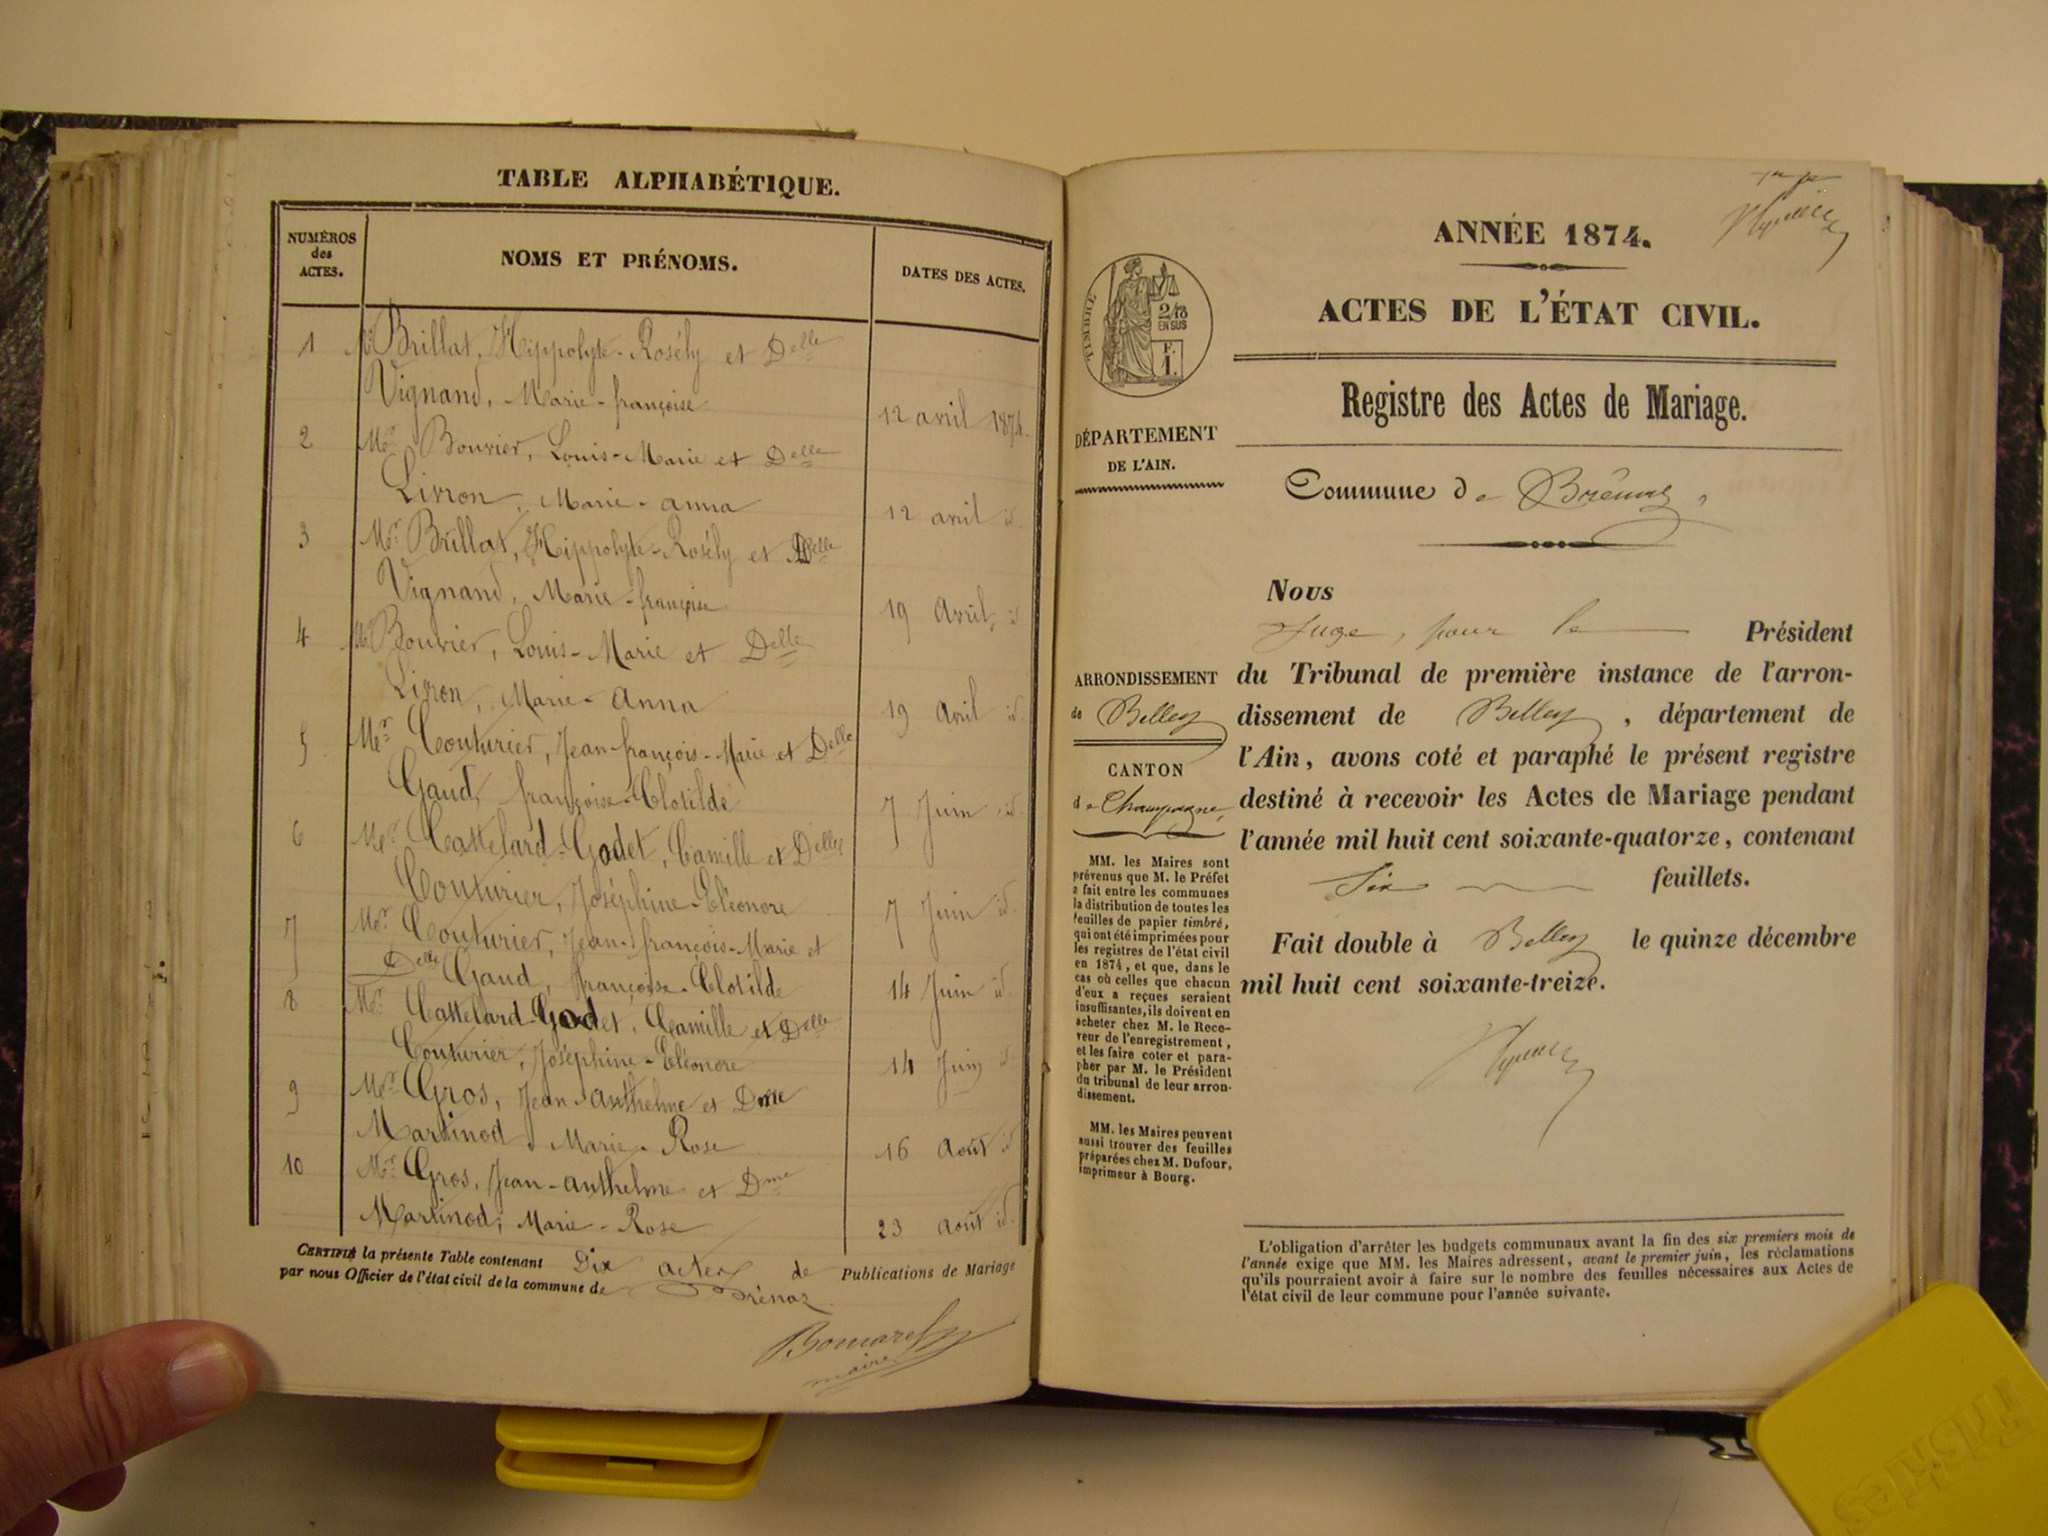 TABLE ALPHABÉTIQUE.
NUMÉROS des ACTES.
NOMS ET PRÉNOMS.
DATES DES ACTES.
1 Mr Brillat, Hippolyte-Rosély et Delle
Vignand, Marie-françoise 12 avril 1874.
2 Mr Bouvier, Louis-Marie et Delle
Livron, Marie-anna 12 avril id.
3 Mr Brillat, Hippolyte-Rosély et Delle
Vignand, Marie-françoise 19 Avril, id
4 Mr Bouvier, Louis-Marie et Delle
Livron, Marie-Anna 19 Avril id.
5 Mr Couturier, Jean-françois-Marie et Delle
Gaud, françoise-Clotilde 7 Juin id.
6 Mr Cattelard-Godet, Camille et Delle
Couturier, Joséphine-Eléonore 7 Juin id.
7 Mr Couturier, Jean-françois-Marie et
Delle Gaud, françoise-Clotilde 14 Juin id.
8 Mr Cattelard-Godet, Camille et Delle
Couturier, Joséphine-Eléonore 14 Juin id
9 Mr Gros, Jean-anthelme et Dme
Martinod, Marie-Rose 16 Août id
10 Mr Gros, Jean-anthelme et Dme
Martinod, Marie-Rose 23 Août id.
CERTIFIÉ la présente Table contenant Dix actes de Publications de Mariage
par nous Officier de l'état civil de la commune de Brénaz
maire
ANNÉE 1874.
ACTES DE L'ÉTAT CIVIL.
TIMBRE
2/10
EN SUS
F.
1.
Registre des Actes de Mariage.
DÉPARTEMENT
DE L'AIN.
Commune de Brénaz,
Nous
Juge, pour le Président
du Tribunal de première instance de l'arron-
dissement de Belley, département de
l'Ain, avons coté et paraphé le présent registre
destiné à recevoir les Actes de Mariage pendant
l'année mil huit cent soixante-quatorze, contenant
Six feuillets.
Fait double à Belley le quinze décembre
mil huit cent soixante-treize.
ARRONDISSEMENT
de Belley
CANTON
de Champagne,
MM. les Maires sont
prévenus que M. le Préfet
a fait entre les communes
la distribution de toutes les
feuilles de papier timbré,
qui ont été imprimées pour
les registres de l'état civil
en 1874, et que, dans le
cas où celles que chacun
d'eux a reçues seraient
insuffisantes, ils doivent en
acheter chez M. le Rece-
veur de l'enregistrement,
et les faire coter et para-
pher par M. le Président
du tribunal de leur arron-
dissement.
MM. les Maires peuvent
aussi trouver des feuilles
préparées chez M. Dufour,
imprimeur à Bourg.
L'obligation d'arrêter les budgets communaux avant la fin des six premiers mois de
l'année exige que MM. les Maires adressent, avant le premier juin, les réclamations
qu'ils pourraient avoir à faire sur le nombre des feuilles nécessaires aux Actes de
l'état civil de leur commune pour l'année suivante.